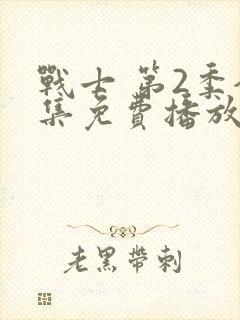 戰士 第2季
集免費播放
老黑帶刺